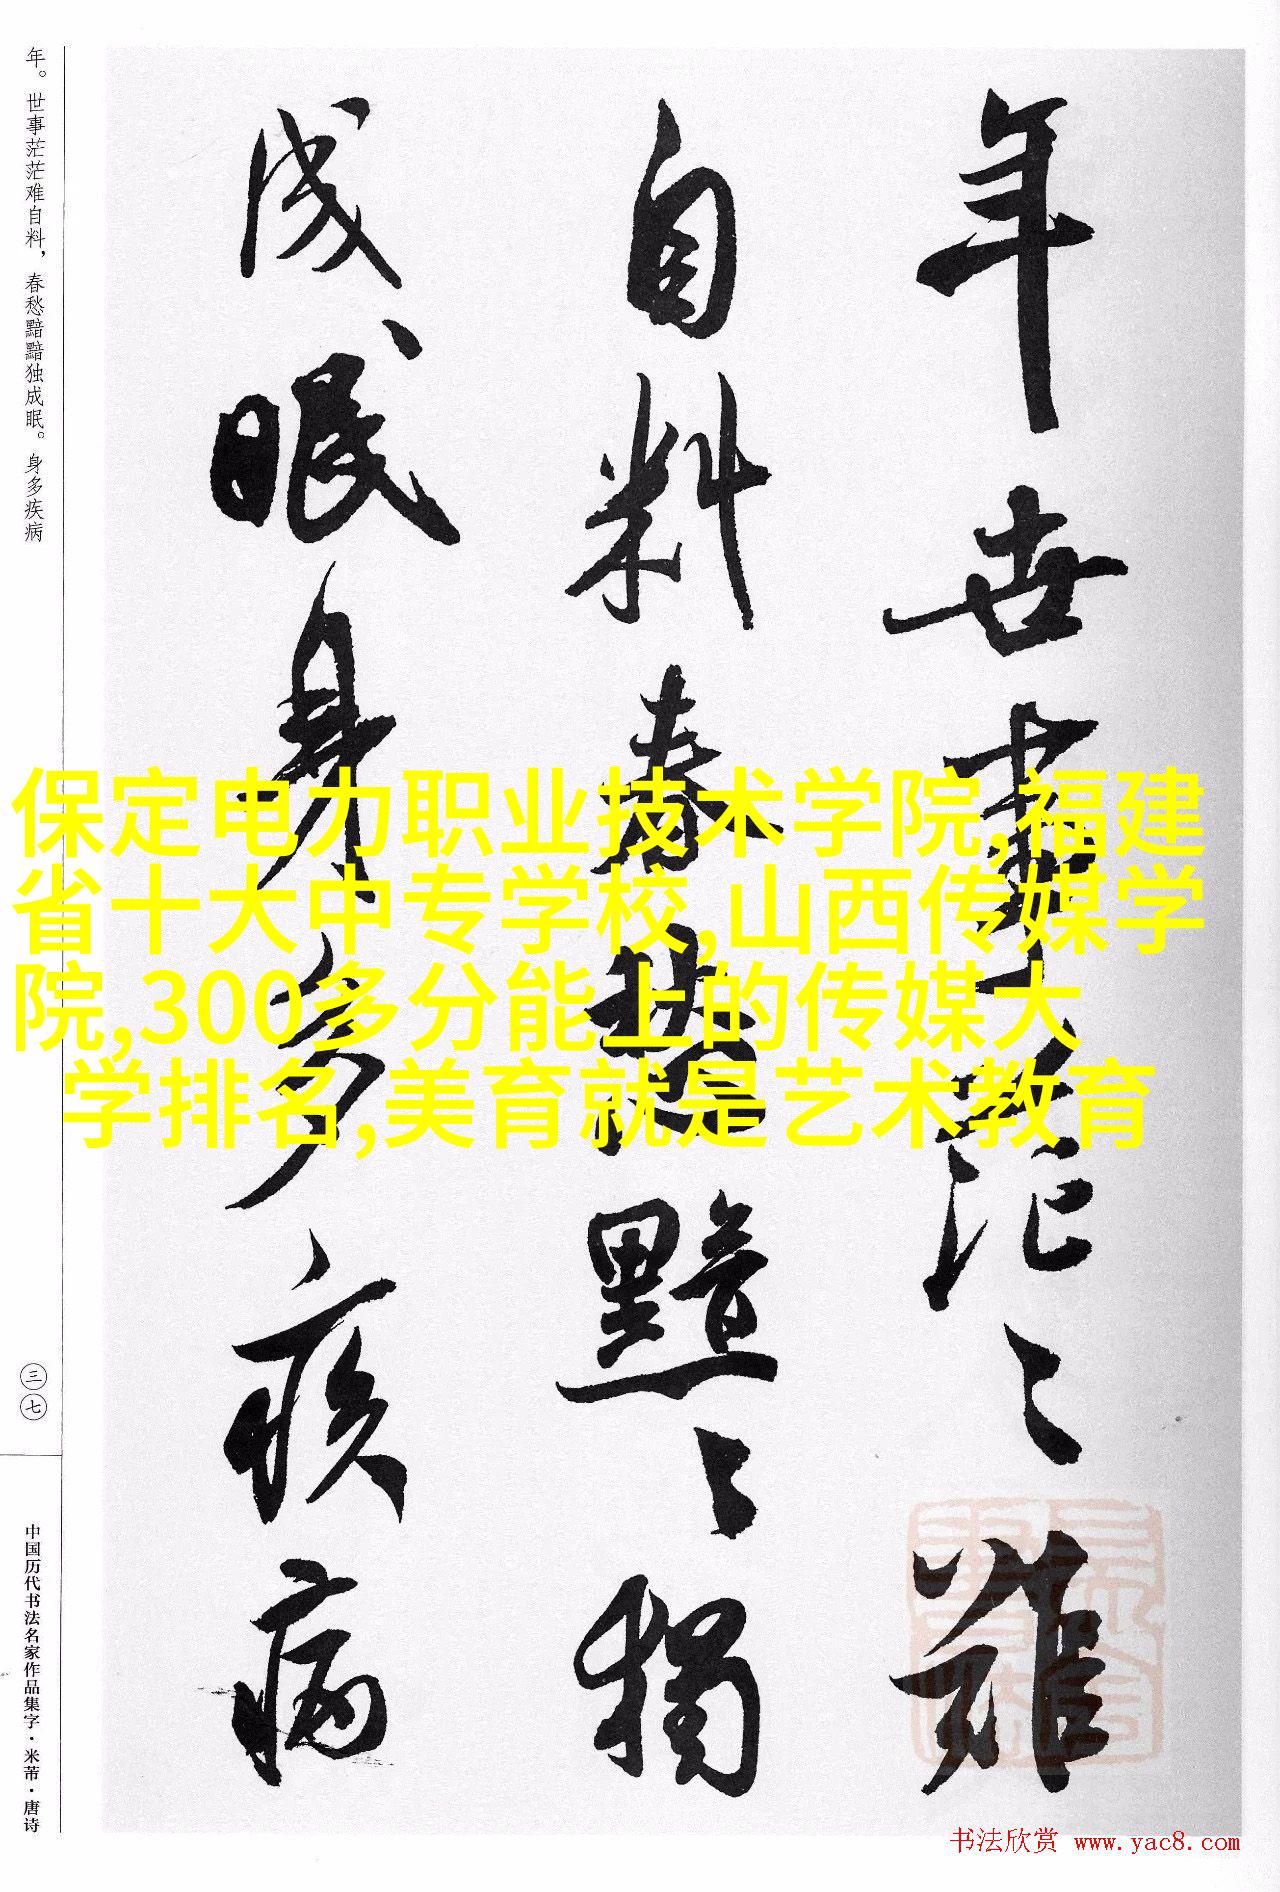 年世事茫〻难
自料春愁黯〻獨
成眠身多疾病
年。世事茫茫难自料，春愁黯黯独成眠。身多疾病
三七
中国历代书法名家作品集字·米芾·唐诗
保定电力职业技术学院,福建
省十大中专学校,山西传媒学
院,300多分能上的传媒大
学排名,美育就是艺术教育
书法欣赏 www.yac8.com